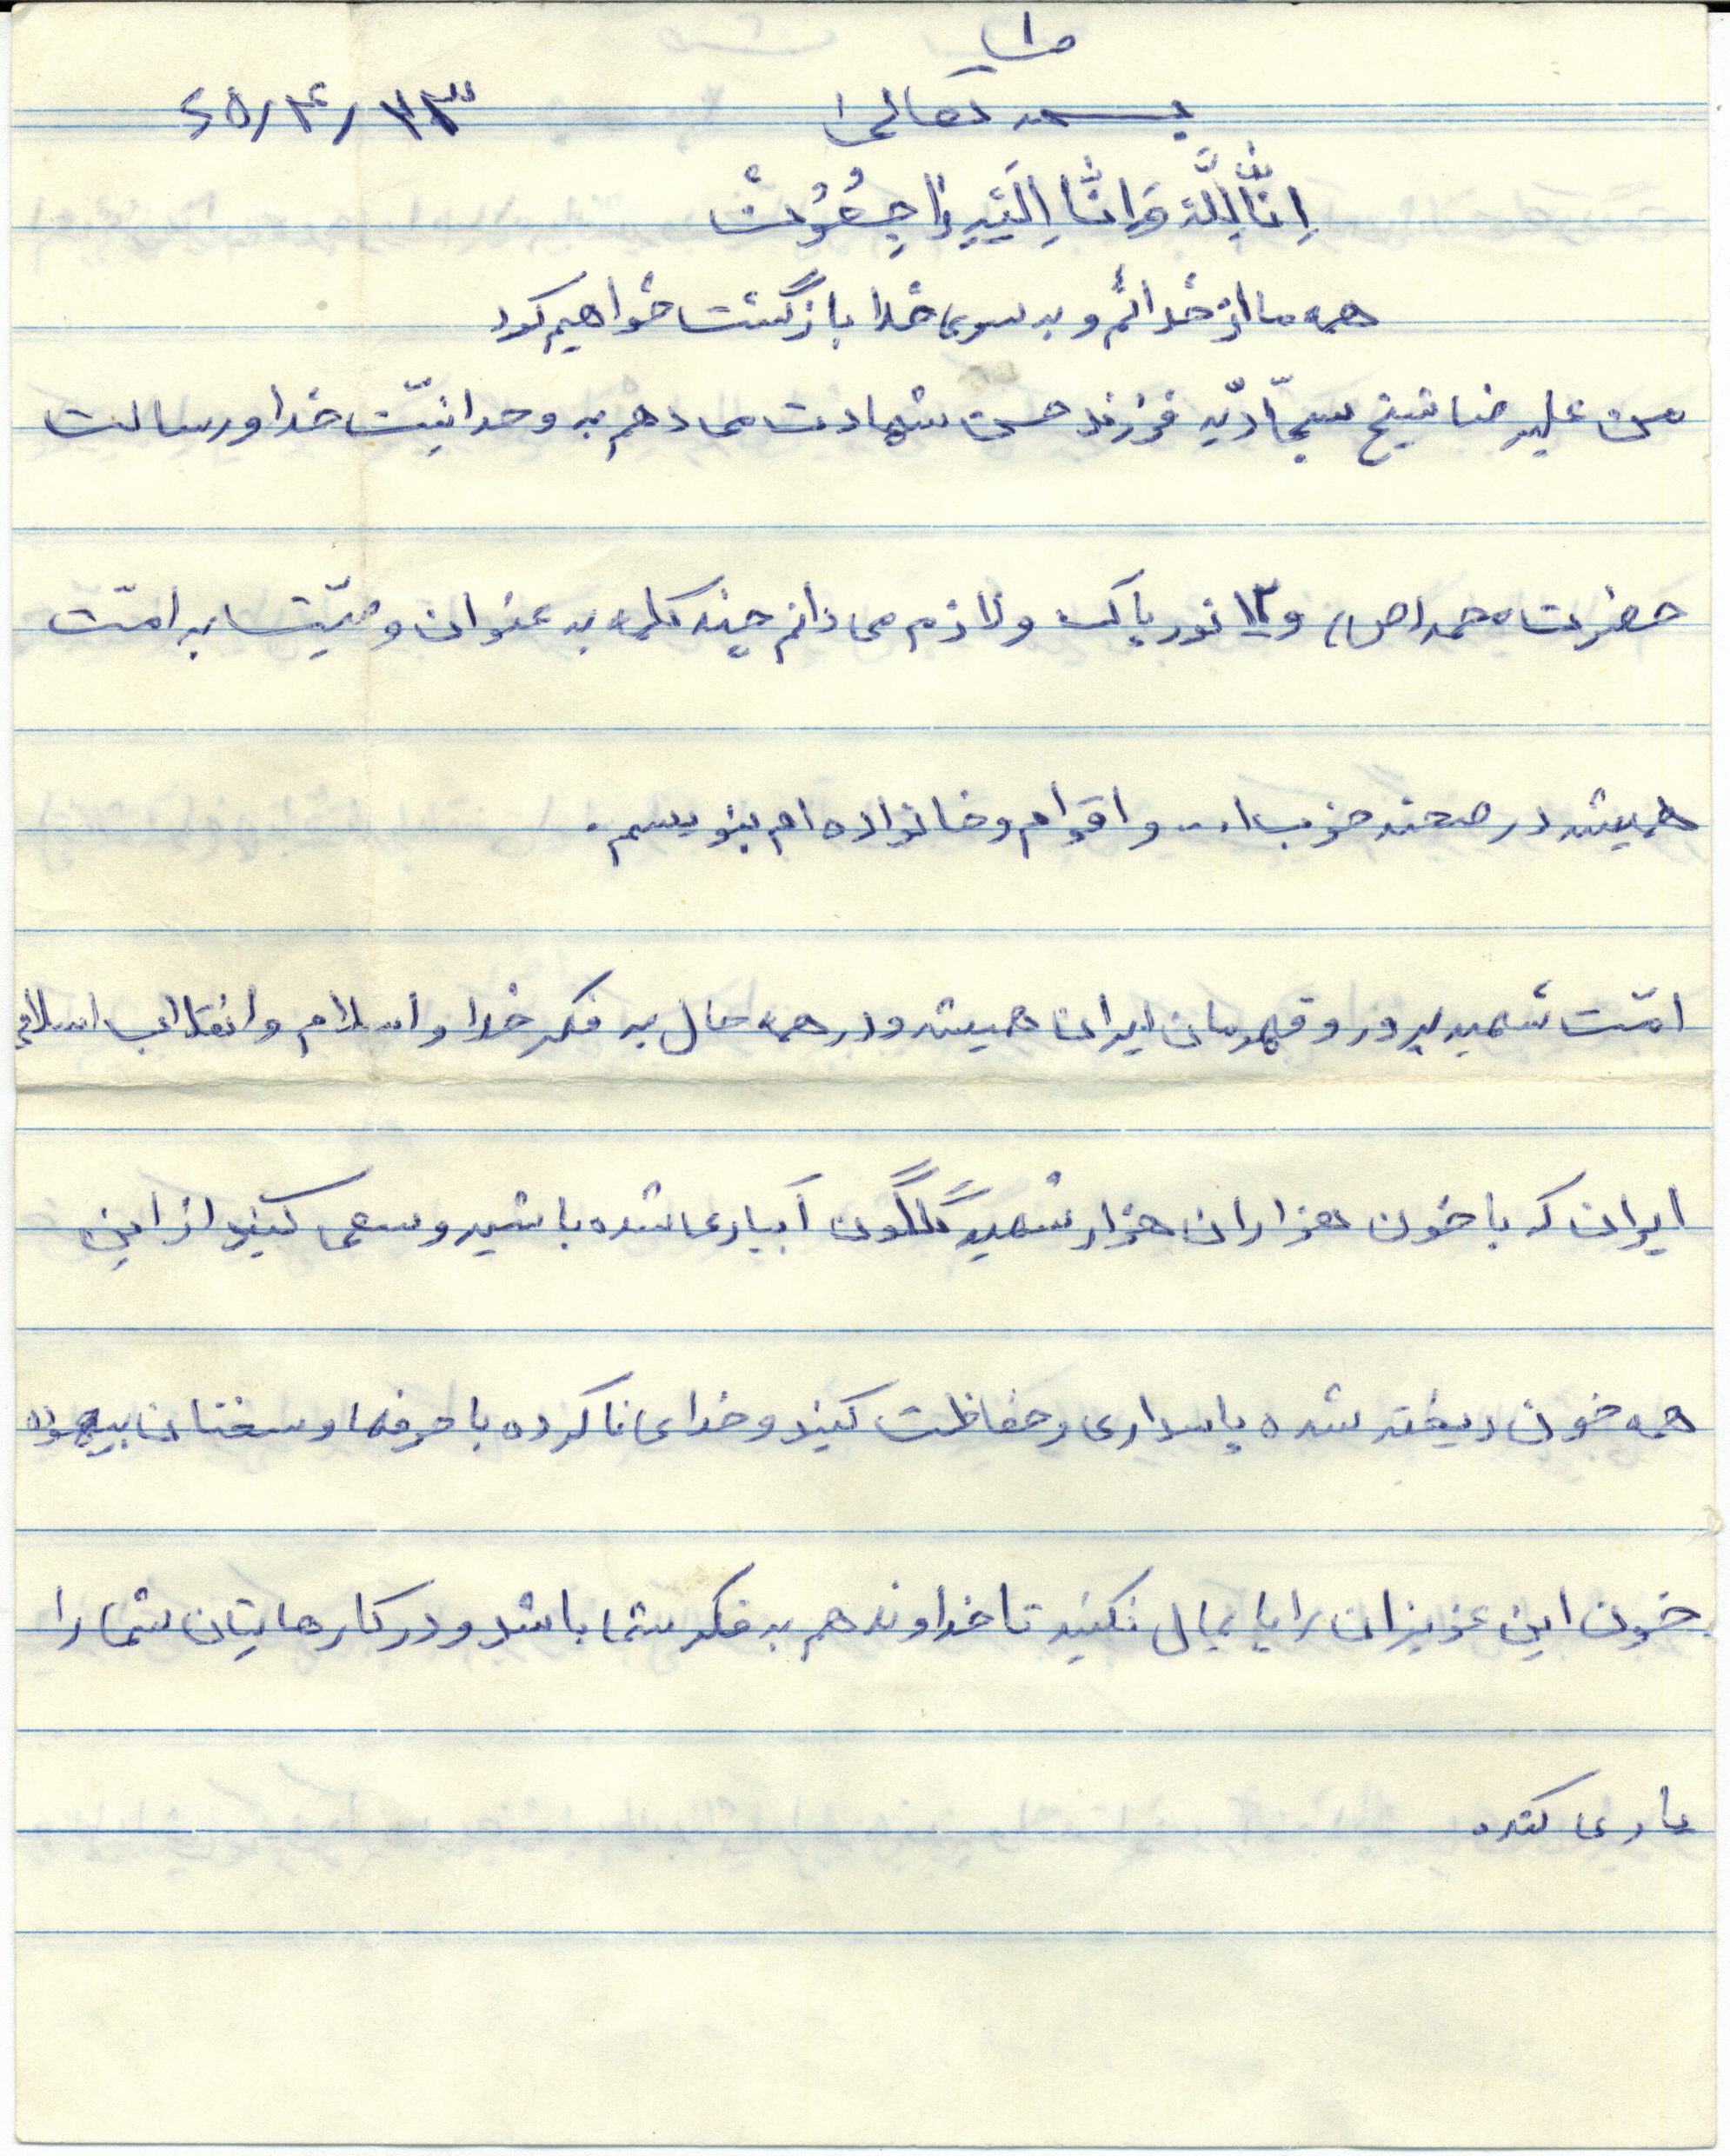 ص ۱
بسمه تعالی
۶۵/۴/۲۳
اِنّا لِلّه وَ اِنّا اِلَیهِ راجِعُونْ
همه ما از خدائم و به سوی خدا بازگشت خواهیم کرد
من علیرضا شیخ سجّادیّه فرزند حسن شهادت می دهم به وحدانیّت خدا و رسالت
حضرت محمد (ص) و ۱۲ نور پاک و لازم می دانم چند کلمه به عنوان وصیّت به امّت
همیشه در صحنه حزب ا... و اقوام و خانواده ام بنویسم.
امّت شهید پرور و قهرمان ایران همیشه و در همه حال به فکر خدا و اسلام و انقلاب اسلامی
ایران که با خون هزاران هزار شهید گلگون آبیاری شده باشید و سعی کنید از این
همه خون ریخته شده پاسداری و حفاظت کنید و خدای ناکرده با حرفها و سخنان بیهوده
خون این عزیزان را پایمال نکنید تا خداوند هم به فکر شما باشد و در کارهایتان شما را
یاری کند.